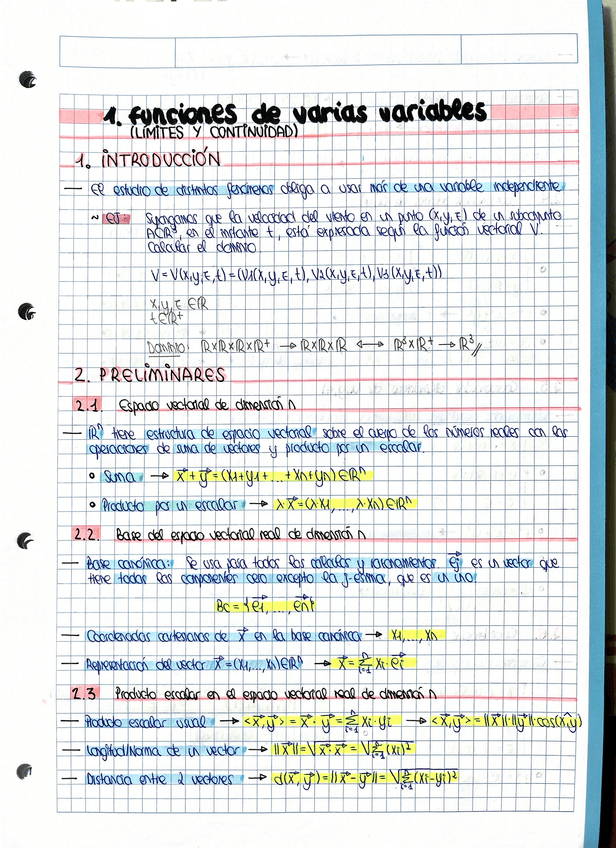 1. funciones de varias variables
(LÍMITES Y CONTINUIDAD)
1. INTRODUCCIÓN
— El estudio de distintos fenómenos obliga a usar más de una variable independiente
~ EJ: Supongamos que la velocidad del viento en un punto (x,y,z) de un subconjunto
A⊂ℝ³, en el instante t, está expresada según la función vectorial V.
Calcular el dominio.
V = V(x,y,z,t) = (V1(x,y,z,t), V2(x,y,z,t), V3(x,y,z,t))
x,y,z ∈ ℝ
t ∈ ℝ⁺
Dominio: ℝxℝxℝxℝ⁺ → ℝxℝxℝ ↔ ℝ³xℝ⁺ → ℝ³//
2. PRELIMINARES
2.1. Espacio vectorial de dimensión n
— ℝⁿ tiene estructura de espacio vectorial sobre el cuerpo de los números reales con las
operaciones de suma de vectores y producto por un escalar.
∘ Suma → x⃗ + y⃗ = (x1+y1+...+xn+yn) ∈ ℝⁿ
∘ Producto por un escalar → λ·x⃗ = (λ·x1,..., λ·xn) ∈ ℝⁿ
2.2. Base del espacio vectorial real de dimensión n
— Base canónica: Se usa para todos los cálculos y razonamientos. e⃗j es un vector que
tiene todas las componentes cero excepto la j-ésima, que es un uno.
Bc = {e⃗1,..., e⃗n}
— Coordenadas cartesianas de x⃗ en la base canónica → x1,..., xn
— Representación del vector x⃗ = (x1,..., xn) ∈ ℝⁿ → x⃗ = Σⁿᵢ₌₁ xi·e⃗i
2.3 Producto escalar en el espacio vectorial real de dimensión n
— Producto escalar usual → <x⃗,y⃗> = x⃗·y⃗ = Σⁿᵢ₌₁ xi·yi → <x⃗,y⃗> = ||x⃗||·||y⃗||·cos(x̂,y)
— Longitud/Norma de un vector → ||x⃗|| = √x⃗·x⃗ = √Σⁿᵢ₌₁(xi)²
— Distancia entre 2 vectores → d(x⃗,y⃗) = ||x⃗-y⃗|| = √Σⁿᵢ₌₁(xi-yi)²